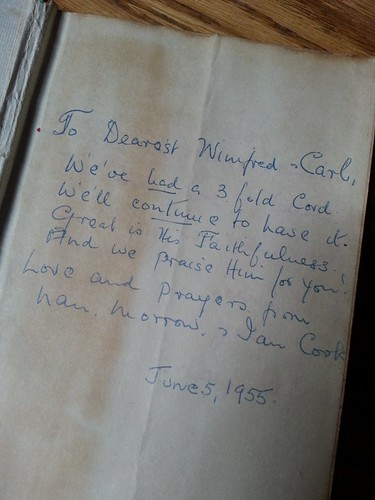 To Dearest Winifred & Carl,
We've had a 3 fold Cord.
We'll continue to have it.
Great is His Faithfulness!
And we praise Him for you!
Love and Prayers from
Nan. Morrow. & Ian Cook
June 5, 1955.